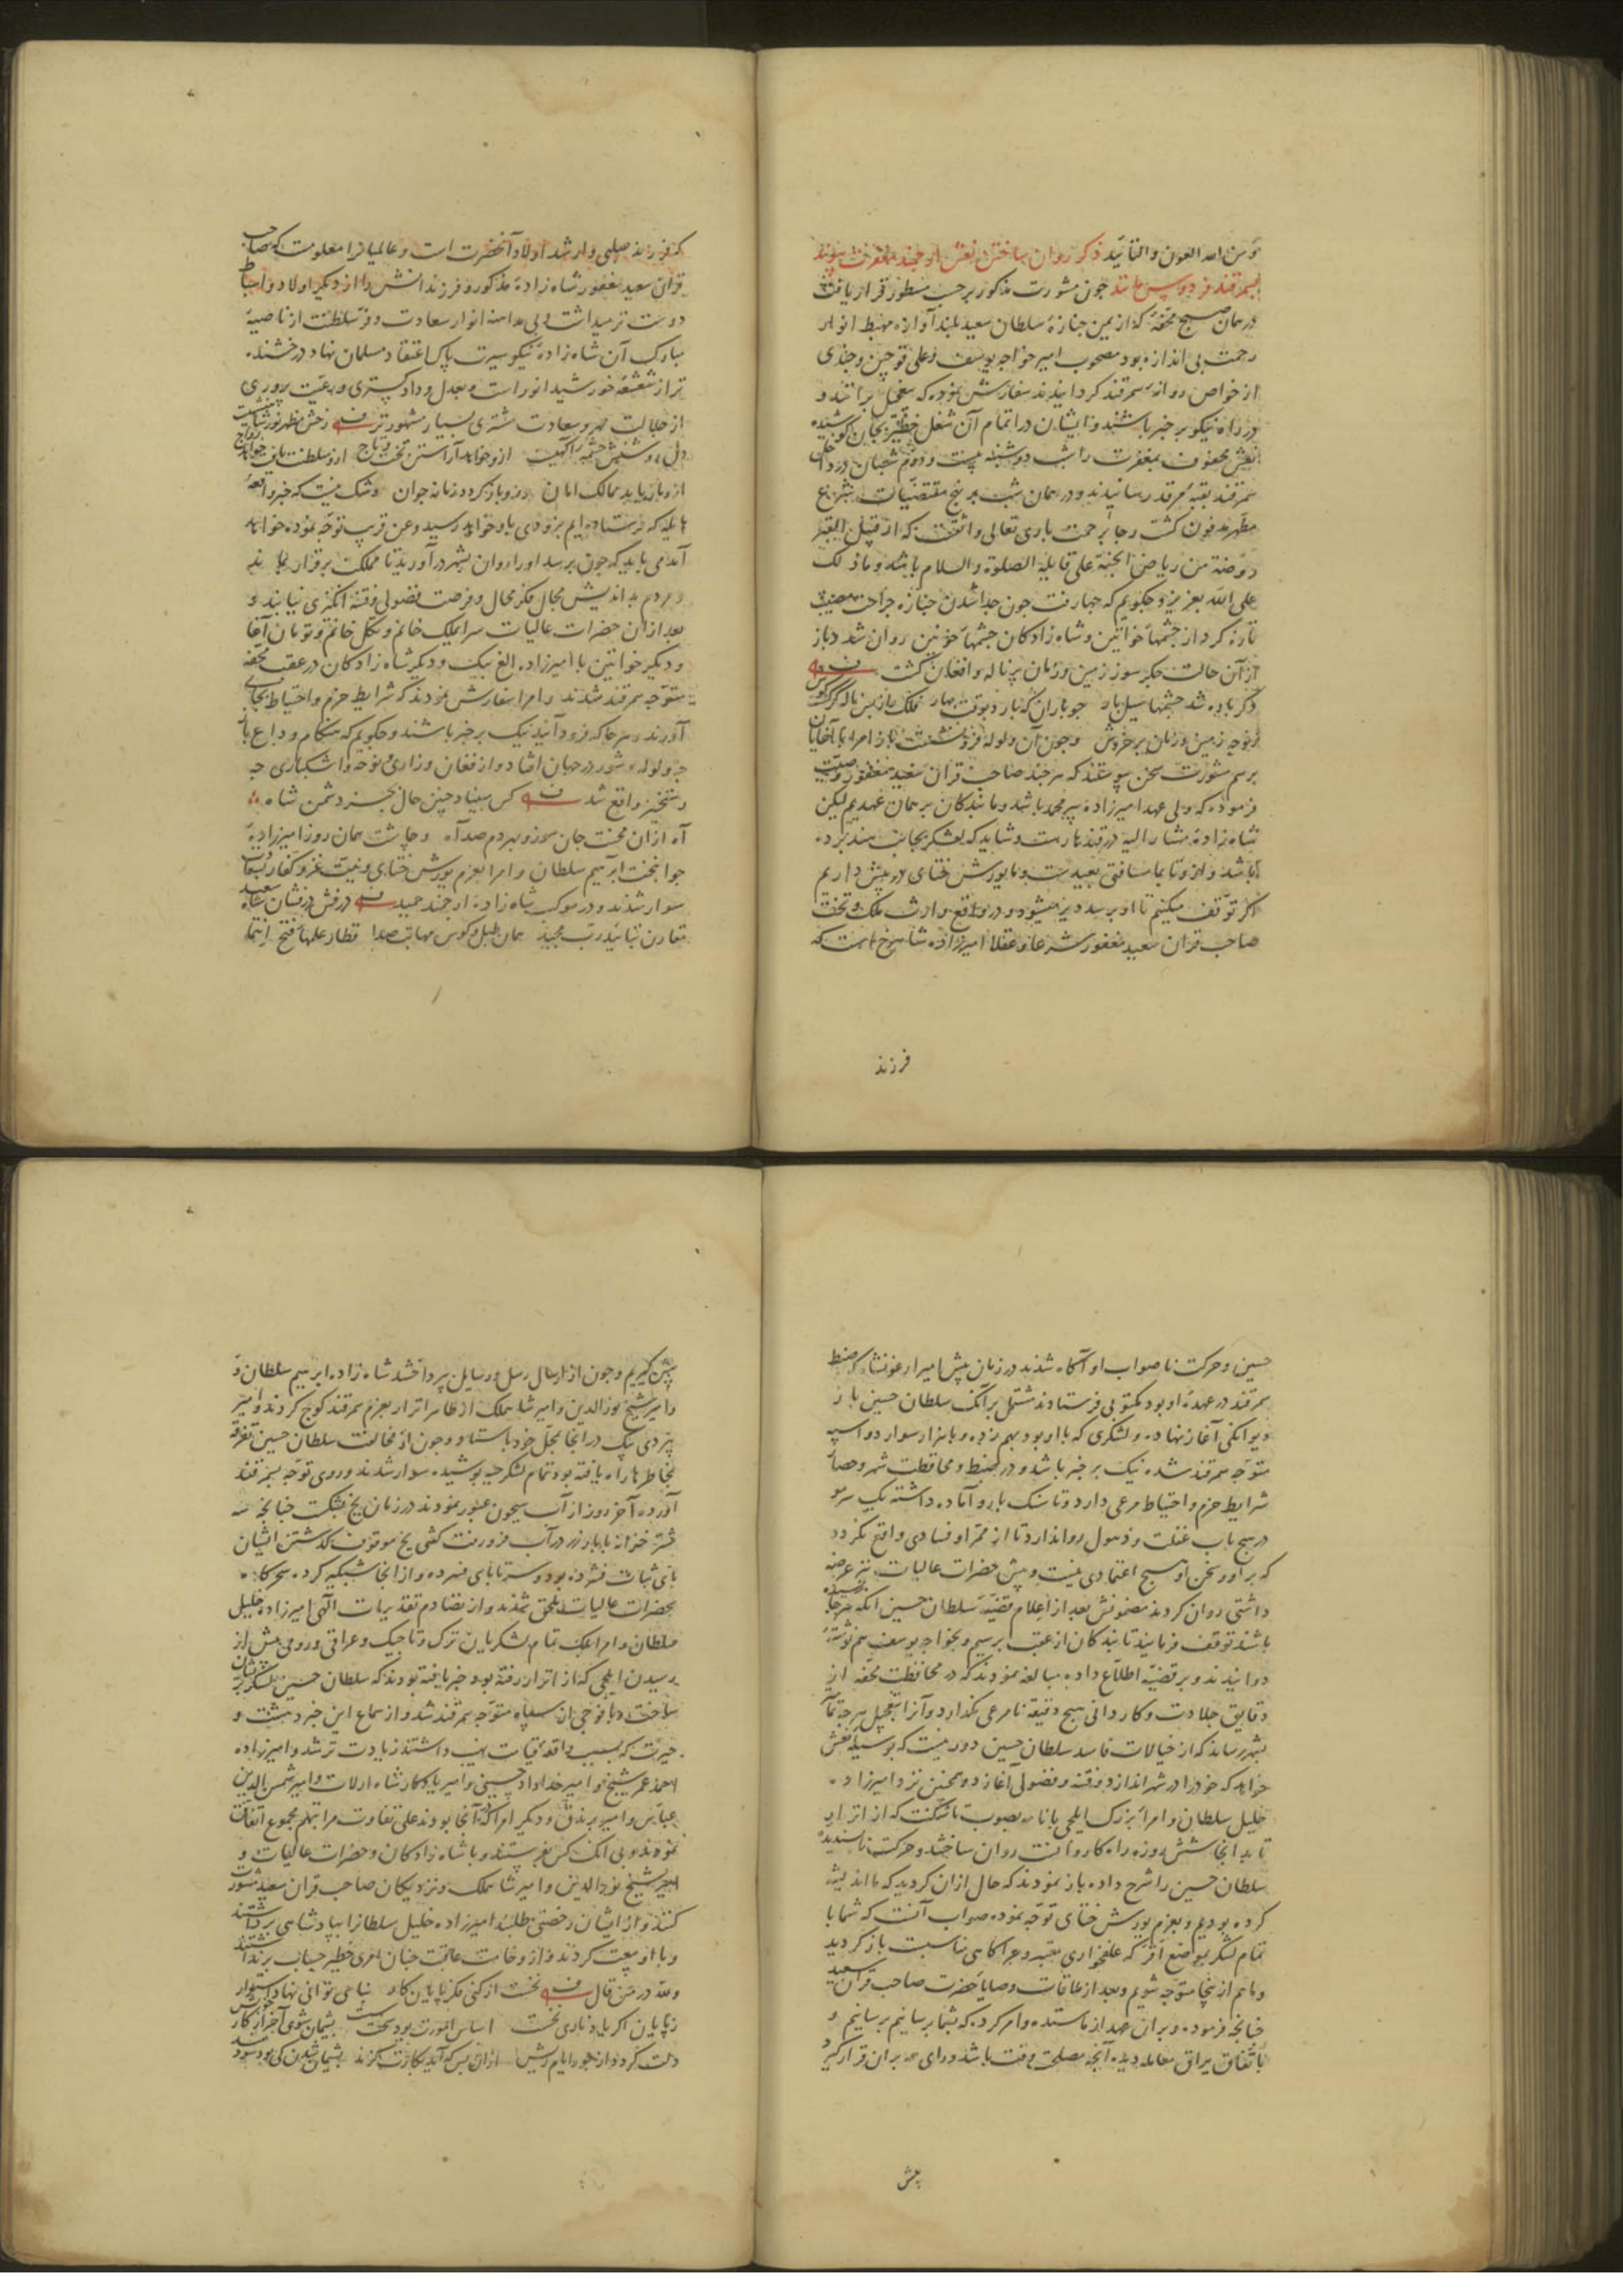 و من الله العون والتائید ذکر روان ساختن نعش ارجمند مغفرت پیوند
بسمرقند فردوس مانند چون مشورت مذکور بر حسب مسطور قرار یافت
در همان صبح محفهٔ که از یمن جنازهٔ سلطان سعید بلند آوازه مهبط انوار
رحمت بی اندازه بود مصحوب امیر خواجه یوسف و علی قوچین و جندی
از خواص روانهٔ سمرقند کردانیدند سفارش نموده که بتعجیل برانند و
در راه نیکو بر خبر باشند و ایشان در اتمام آن شغل خطیر بجان کوشیده
نعش محفوف بمغفرت را شب دوشنبه بیست و دوم شعبان در داخل
سمرقند بقبهٔ مرقد رسانیدند و در همان شب بر نهج مقتضیات شرع
مطهر مدفون کشت رجا برحمت باری تعالی واثقست که از قبیل القبر
روضة من ریاض الجنة علی قایله الصلوة والسلام باشد و ما ذلک
علی الله بعزیز و حکویم که جهارفت جون جدا شدن جنازه جراحت مصیبت
تازه کرد از چشمهاء خواتین و شاه زادکان چشمهاء خونین روان شد و باز
از آن حالت جکر سوز زمین و زمان پر ناله و افغان کشت
دکر باره شد چشمها سیل بار جو باران که بارد بوقت بهار فلک باز بس ناله کرد کوش
ز نوحه زمین و زمان پر خروش و چون آن ولوله فرو نشست باز امرا با آغایان
برسم مشورت سخن پیوستند که هر چند صاحب قران سعید مغفور وصیت
فرموده که ولی عهد امیرزاده پیر محمد باشد و ما بندکان بر همان عهدیم لیکن
شاه زادهٔ مشار الیه در قندهارست و شاید که لشکر بجانب هند برده
باشد و از و تا بما مسافتی بعید ست و ما یورش ختای در پیش داریم
اکر توقف میکنیم تا او برسد دیر میشود و در واقع وارث ملک و تخت
صاحب قران سعید مغفور شرعا و عقلا امیرزاده شاهرخ است که
فرزند
که فرزند صلبی و ارشد اولاد آنحضرت است و عالمیانرا معلومست که صاحب
قران سعید مغفور شاه زادهٔ مذکور و فرزندانش را از دیکر اولاد و احفاد
دوست تر میداشت و بی مداهنه انوار سعادت و فر سلطنت از ناصیهٔ
مبارک آن شاه زادهٔ نیکو سیرت پاک اعتقاد مسلمان نهاد درخشنده
تر از شعشعهٔ خورشید انور است و بعدل و داد کستری و رعیت پروری
از جلالت مهر و سعادت مشتری بسیار مشهور تر رخش مظهر نور شاهیست
دل روشنش چشمهٔ آکهیست ازو خواهد آراستن تخت و تاج ازو سلطنت یافت خواهد رواج
ازو باز یابد ممالک امان ازو باز کردد زمانه جوان و شک نیست که خبر واقعهٔ
هایله که فرستاده ایم بزودی باو خواهد رسید و عن قریب توجه نموده خواهد
آمد می باید که جون برسد او را روان بشهر در آورند تا مملکت برقرار بماند
و مردم بد اندیش مجال فکر محال و فرصت فضولی و فتنه انکیزی نیابند و
بعد از آن حضرات عالیات سرایملک خانم و تکل خانم و تومان آغا
و دیکر خواتین با امیرزاده الغ بیک و دیکر شاه زادکان در عقب محفه
متوجه سمرقند شدند و امرا سفارش نمودند که شرایط حزم و احتیاط بجای
آورند و هر جا که فرود آیند نیک بر خبر باشند و حکویم که هنکام وداع باز
چه ولوله و شور در جهان افتاد و از فغان و زاری و نوحه و اشکباری چه
رستخیز واقع شد کس مبیناد چنین حال بجز دشمن شاه
آه ازان محنت جان سوز و بهر دم صد آه و چاشت همان روز امیرزادهٔ
جوانبخت ابراهیم سلطان و امرا بعزم یورش ختای و نیت غزو کفار
سوار شدند و در موکب شاه زادهٔ ارجمند حمید درفش درفشان شاه سعید
مقارن بتائید رب مجید همان طبل و کوس مهابت صدا قطار علمهاء فتح انتما
حسین و حرکت ناصواب او آکاه شدند در زمان پیش امیر ارغونشاه که ضبط
سمرقند در عهدهٔ او بود مکتوبی فرستادند مشتمل بر آنک سلطان حسین باز
دیوانکی آغاز نهاده و لشکری که با او بود بهم بر زده و با هزار سوار دو اسپه
متوجه سمرقند شده نیک بر خبر باشد و در ضبط و محافظت شهر و حصار
شرایط حزم و احتیاط مرعی دارد و تا سنک بارو آماده داشته یک سر مو
در هیچ باب غفلت و ذهول روا ندارد تا از ممر او فسادی واقع نکردد
که بر او و سخن او هیچ اعتمادی نیست و پیش حضرات عالیات نیز عرضه
داشتی روان کردند مضمونش بعد از اعلام قضیهٔ سلطان حسین آنکه هر جا رسیده
باشند توقف فرمایند تا بندکان از عقب برسیم و بخواجه یوسف هم نوشتهٔ
دوانیدند و بر قضیه اطلاع داده مبالغه نمودند که در محافظت محفه از
دقایق جلادت و کاردانی هیچ دقیقه نامرعی نکذارد و آنرا بتعجیل هر چه تمامتر
بشهر رساند که از خیالات فاسد سلطان حسین دور نیست که بوسیلهٔ نعش
خواهد که خود را در شهر اندازد و فتنه و فضولی آغازد و همچنین نزد امیرزاده
خلیل سلطان و امراء بزرک ایلچی با نامه بصوب تاشکنت که از اترار
تا بد انجا شش روزه راه کاروانست روان ساختند و حرکت ناپسندیدهٔ
سلطان حسین را شرح داده باز نمودند که حال ازان کردید که ما اندیشه
کرده بودیم و بعزم یورش ختای توجه نموده صواب آنست که شما با
تمام لشکر بموضع آقر که علفخواری معتبر و چراکاهی مناسبست باز کردید
و ما هم از ینجا متوجه شویم و بعد از ملاقات وصایاء حضرت صاحب قران سعید
چنانچه فرموده و بران عهد از ما ستده و امر کرده که بشما برسانیم برسانیم و
باتفاق یراق معامله دیده آنچه مصلحت وقت باشد و رای همه بران قرار کیرد
پیش
پیش کیریم و چون از ارسال رسل و رسایل پرداختند شاه زاده ابراهیم سلطان
و امیر شیخ نور الدین و امیر شاهملک از ظاهر اترار بعزم سمرقند کوچ کردند و امیر
بیردی بیک در انجا بمحل خود باستاد و چون از مخالفت سلطان حسین تفرقه
بخاطرها راه یافته بود تمام لشکر جیبه پوشیده سوار شدند و روی توجه بسمرقند
آورده آخر روز از آب سیحون عبور نمودند در زمان یخ بشکست چنانچه سه
شتر خزانه با بار زر در آب فرو رفت کفتی یخ موقوف کذشتن ایشان
پای ثبات فشرده بود و سر تا پای فسرده و از انجا شبکیر کرده سحرکاه
بحضرات عالیات ملحق شدند و از تصادم تقدیرات الهی امیرزاده خلیل
سلطان و امرا بلک تمام لشکریان ترک و تاجیک و عراقی و رومی پیش از
رسیدن ایلچی که از اترار رفته بود خبر یافته بودند که سلطان حسین لشکر پریشان
ساخت و با فوجی از سپاه متوجه سمرقند شد و از سماع این خبر دهشت و
حیرت که بسبب واقعهٔ قیامت نهیب داشتند زیادت تر شد و امیرزاده
احمد عمر شیخ و امیر خداداد حسینی و امیر یادکار شاه ارلات و امیر شمس الدین
عباس و امیر برندق و دیکر امرا که آنجا بودند علی تفاوت مراتبهم مجموع اتفاق
نمودند و بی آنک کس بفرستند و با شاه زادکان و حضرات عالیات و
امیر شیخ نور الدین و امیر شاهملک و نزدیکان صاحب قران سعید مشورت
کنند و از ایشان رخصتی طلبند امیرزاده خلیل سلطانرا بپادشاهی برداشتند
و با او بیعت کردند و از وخامت عاقبت چنان امری خطیر حساب برنداشتند
و لله در من قال نخست ار کنی فکر پایان کار بنا می توانی نهاد استوار
ز پایان اکر یاد ناری نخست اساس امورت بود سخت سست پشیمان شوی آخر از کار خویش
دلت کردد از جور ایام ریش ازان پس که آید بکارت کزند پشیمان شدن کی بود سودمند